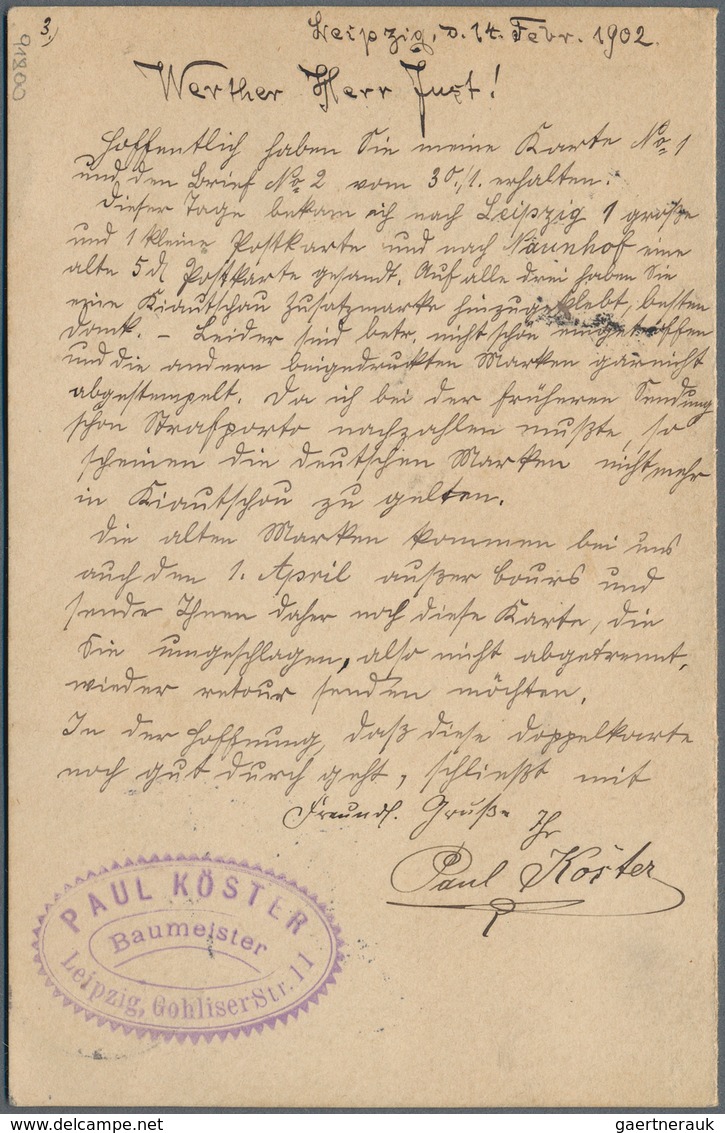 3.)
91800
Leipzig, d. 14. Febr. 1902.
Werther Herr Just!
Hoffentlich haben Sie meine Karte No 1
und den Brief No 2 vom 30./1. erhalten.
Dieser Tage bekam ich nach Leipzig 1 große
und 1 kleine Postkarte und nach Naunhof eine
alte 5 d Postkarte gesandt. Auf alle drei haben Sie
eine Kiautschau Zusatzmarke hinzugeklebt, besten
Dank. – Leider sind betr. nicht schön eingetroffen
und die andern beigedruckten Marken garnicht
abgestempelt. Da ich bei der früheren Sendung
schon Strafporto nachzahlen mußte, so
scheinen die deutschen Marken nicht mehr
in Kiautschou zu gelten.
Die alten Marken kommen bei uns
auch den 1. April außer Cours und
sende Ihnen daher noch diese Karte, die
Sie umgeschlagen, also nicht abgetrennt,
wieder retour senden möchten.
In der Hoffnung, daß diese Doppelkarte
noch gut durch geht, schließt mit
Freundl. Gruße Ihr
Paul Köster
PAUL KÖSTER
Baumeister
Leipzig, Gohliser Str. 11
gaertnerauk